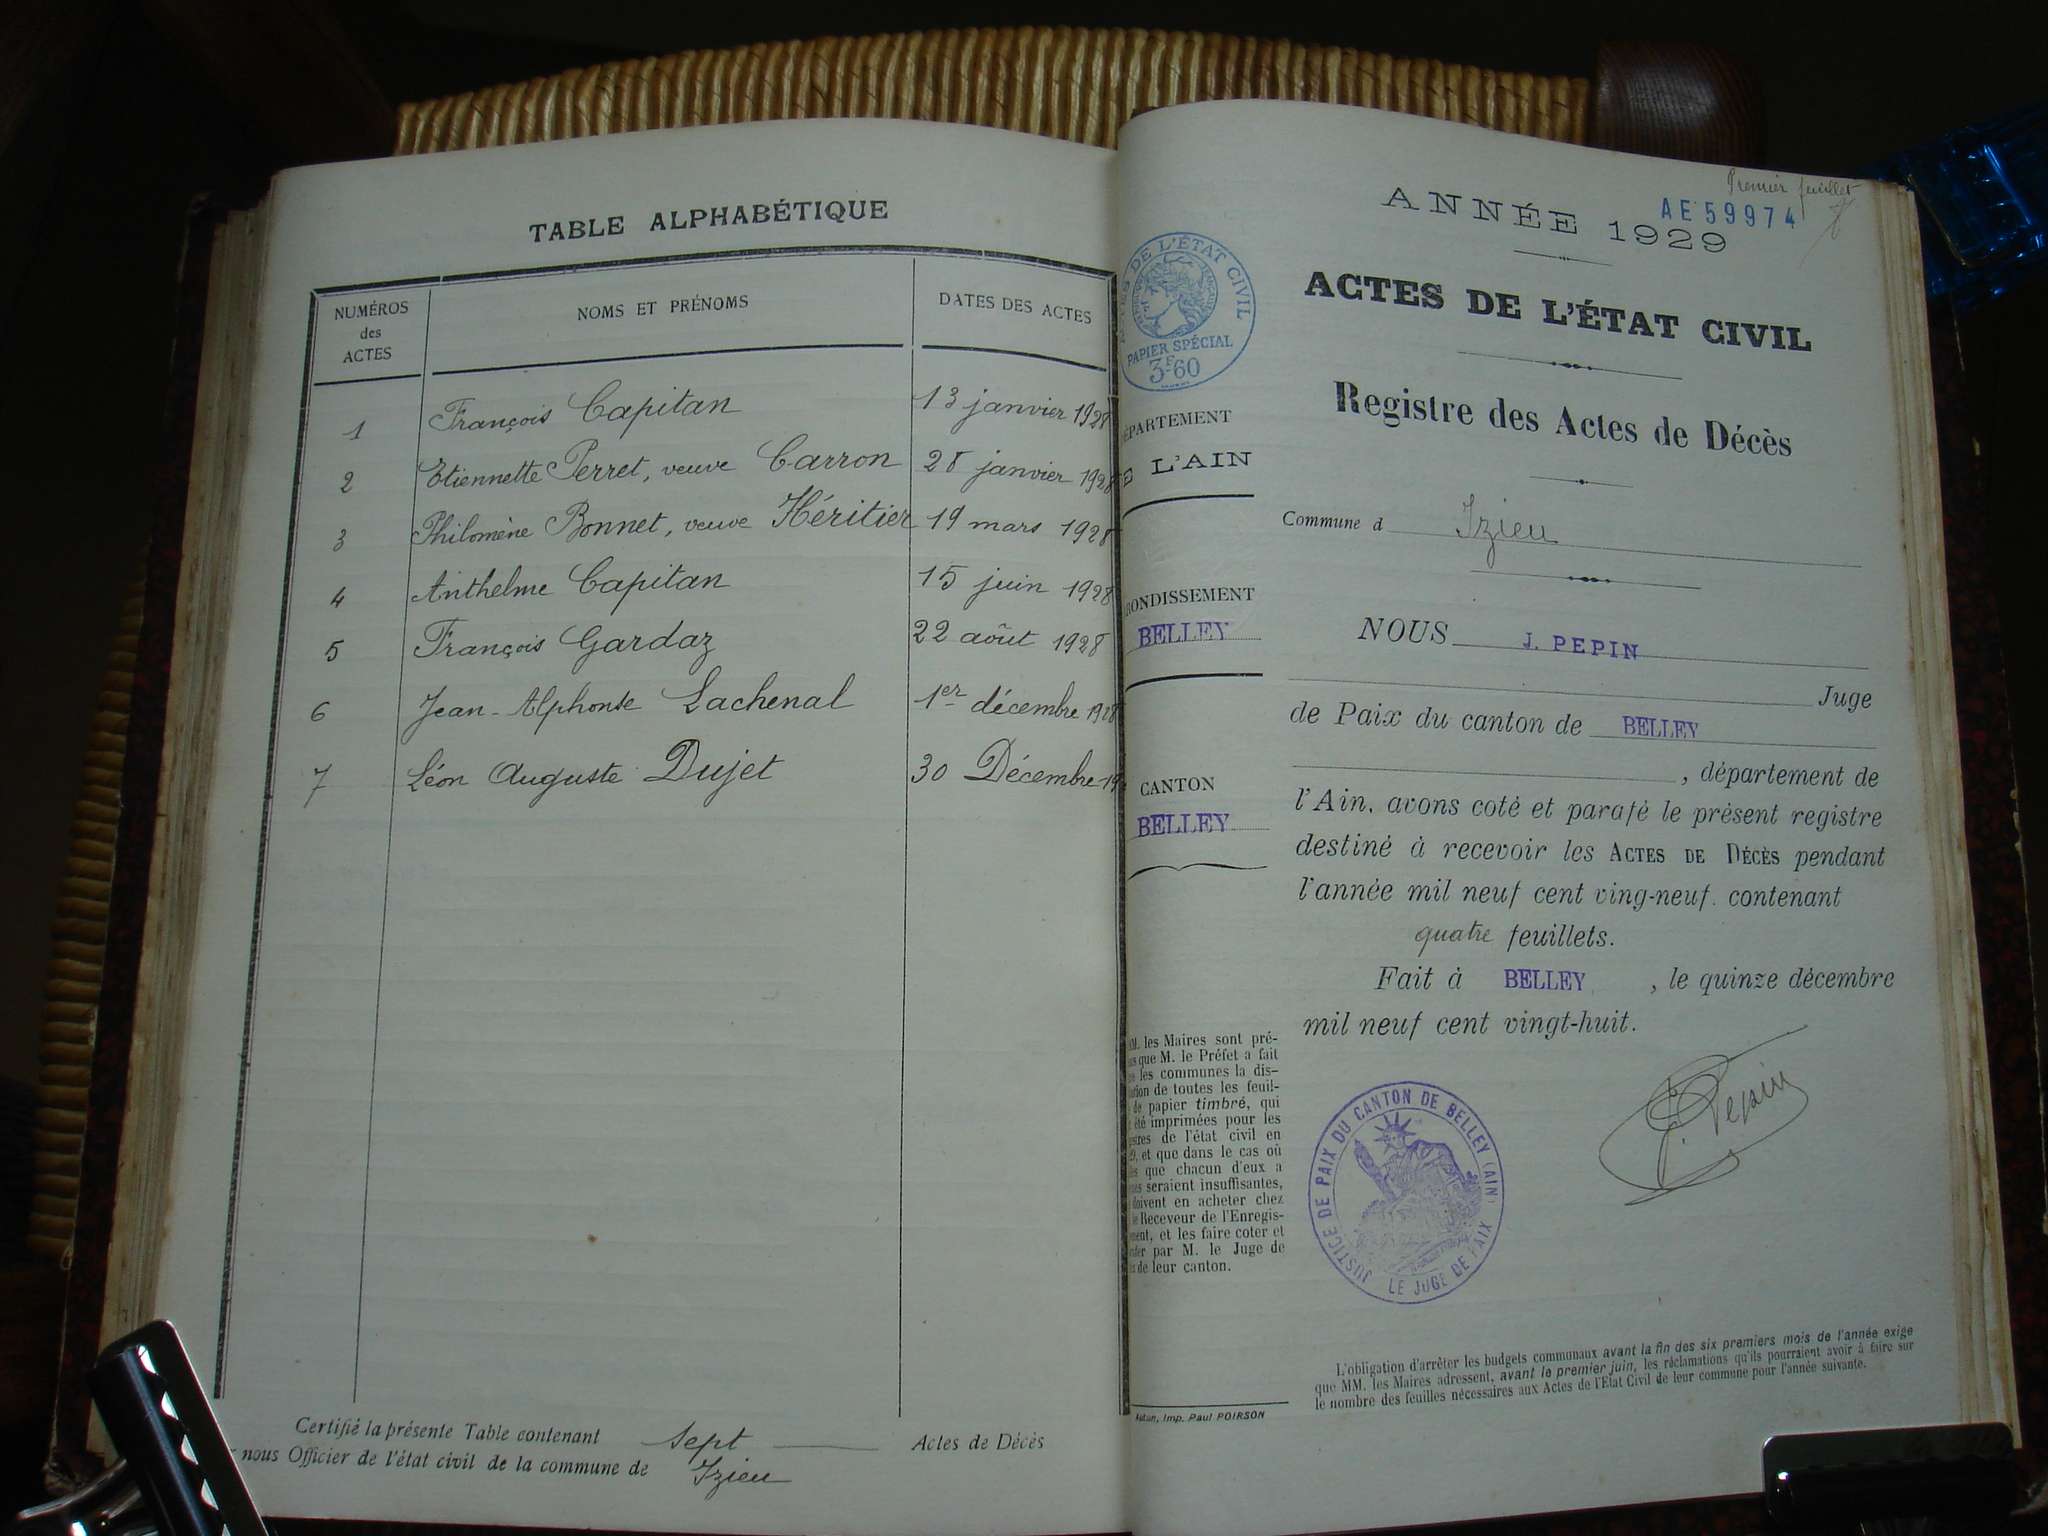 TABLE ALPHABÉTIQUE
NUMÉROS
des
ACTES
NOMS ET PRÉNOMS
DATES DES ACTES
1 François Capitan 13 janvier 1928
2 Etiennette Perret, veuve Carron 28 janvier 1928
3 Philomène Bonnet, veuve Héritier 19 mars 1928
4 Anthelme Capitan 15 juin 1928
5 François Gardaz 22 août 1928
6 Jean-Alphonse Lachenal 1er décembre 1928
7 Léon Auguste Dujet 30 Décembre 19
Certifié la présente Table contenant Sept Actes de Décès
nous Officier de l'état civil de la commune de Izieu
Premier feuillet
AE 59974
ANNÉE 1929
DE L'ÉTAT CIVIL
PAPIER SPÉCIAL
3F60
ACTES DE L'ÉTAT CIVIL
Registre des Actes de Décès
ÉPARTEMENT
E L'AIN
Commune d Izieu
RONDISSEMENT
BELLEY
CANTON
BELLEY
NOUS J. PEPIN
Juge
de Paix du canton de BELLEY
, département de
l'Ain, avons coté et parafé le présent registre
destiné à recevoir les ACTES DE DÉCÈS pendant
l'année mil neuf cent ving-neuf. contenant
quatre feuillets.
Fait à BELLEY , le quinze décembre
mil neuf cent vingt-huit.
J. Pepin
M. les Maires sont pré-
que M. le Préfet a fait
les communes la dis-
tion de toutes les feuil-
de papier timbré, qui
été imprimées pour les
de l'état civil en
9, et que dans le cas où
que chacun d'eux a
seraient insuffisantes,
doivent en acheter chez
Receveur de l'Enregis-
ment, et les faire coter et
par M. le Juge de
de leur canton.
JUSTICE DE PAIX DU CANTON DE BELLEY (AIN)
LE JUGE DE PAIX
L'obligation d'arrêter les budgets communaux avant la fin des six premiers mois de l'année exige
que MM. les Maires adressent, avant le premier juin, les réclamations qu'ils pourraient avoir à faire sur
le nombre des feuilles nécessaires aux Actes de l'Etat Civil de leur commune pour l'année suivante.
Imp. Paul POIRSON